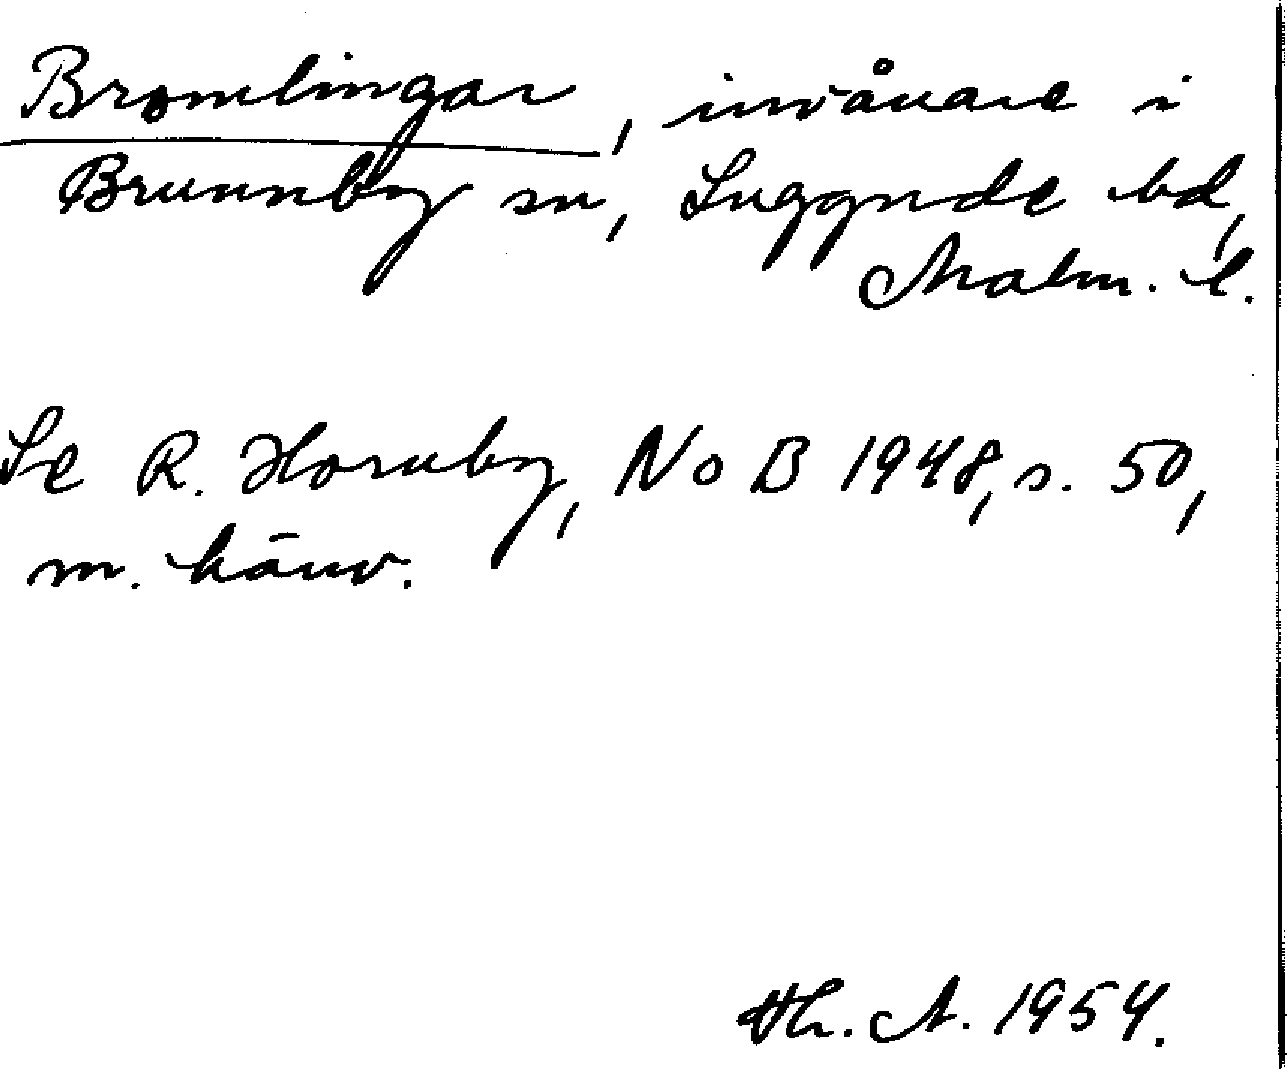 Bromlingar, invånare i
Brunnby sn, Luggude hd,
Malm. l.
Se R. Hornby, NoB 1948, s. 50,
m. hänv.
Th. A. 1954.